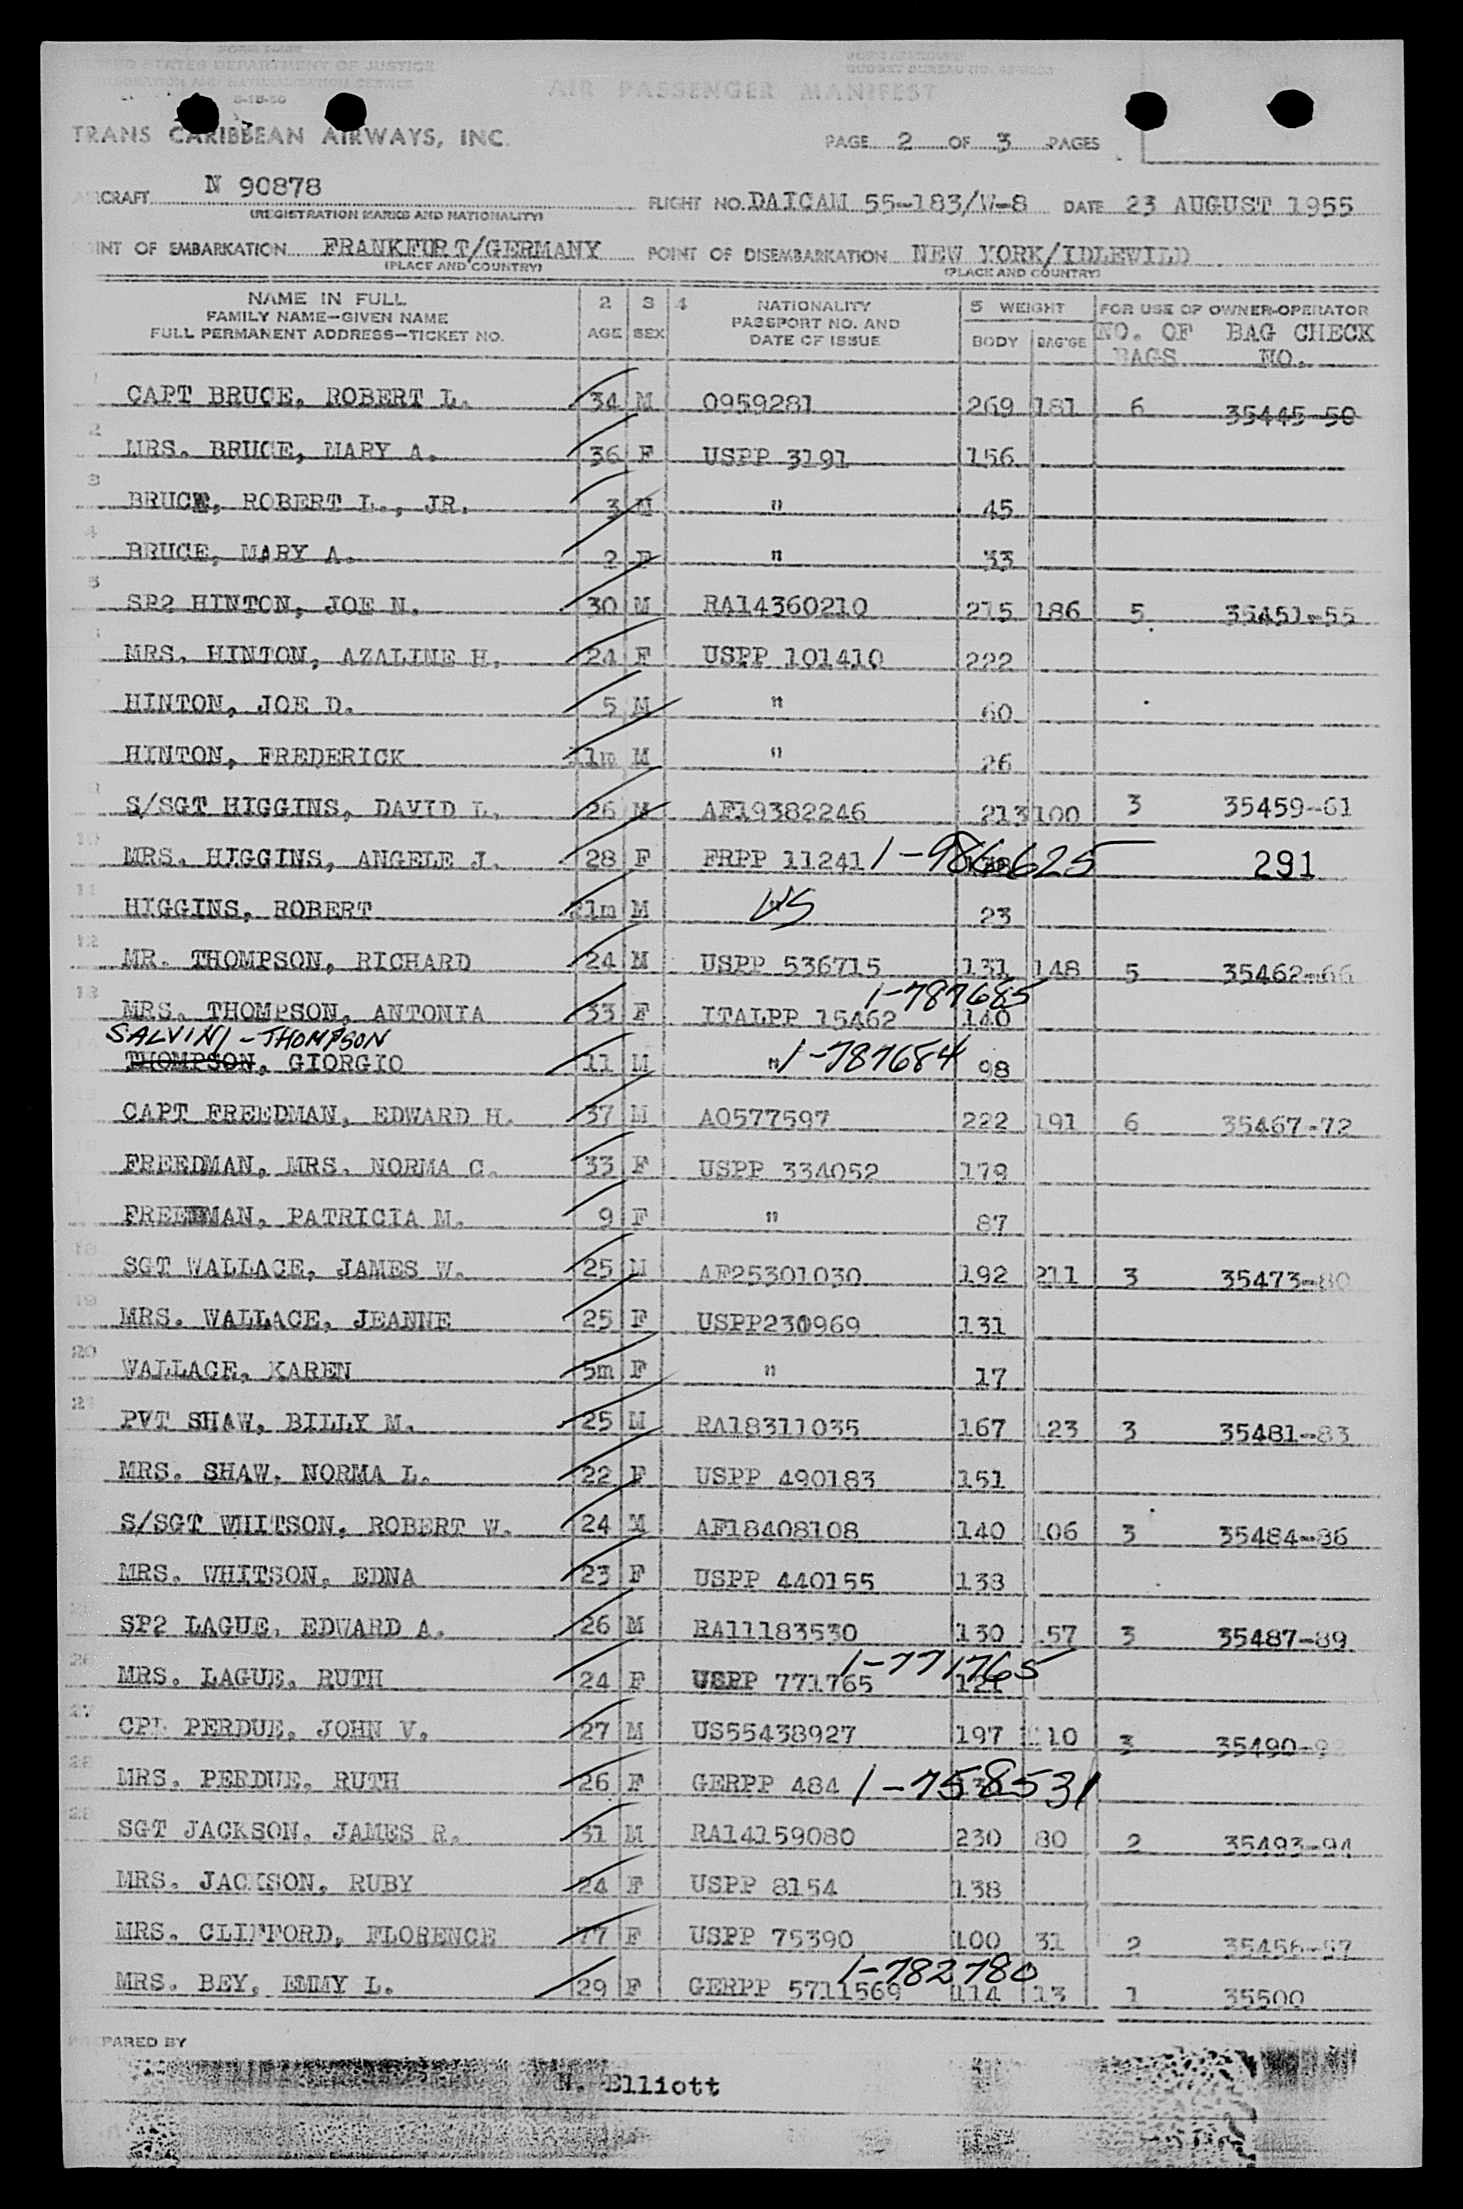 UNITED STATES DEPARTMENT OF JUSTICE
IMMIGRATION AND NATURALIZATION SERVICE
AIR PASSENGER MANIFEST
TRANS CARIBBEAN AIRWAYS, INC. PAGE 2 OF 3 PAGES
AIRCRAFT N 90878 FLIGHT NO. DAICAM 55-183/W-8 DATE 23 AUGUST 1955
(REGISTRATION MARKS AND NATIONALITY)
POINT OF EMBARKATION FRANKFURT/GERMANY POINT OF DISEMBARKATION NEW YORK/IDLEWILD
(PLACE AND COUNTRY) (PLACE AND COUNTRY)
NAME IN FULL 2 3 4 NATIONALITY 5 WEIGHT FOR USE OF OWNER-OPERATOR
FAMILY NAME-GIVEN NAME AGE SEX PASSPORT NO. AND BODY BAG'GE NO. OF BAG CHECK
FULL PERMANENT ADDRESS-TICKET NO. DATE OF ISSUE BAGS NO.
CAPT BRUCE, ROBERT L. 34 M 0959281 269 181 6 35445-50
2 MRS. BRUCE, MARY A. 36 F USPP 3191 156
3 BRUCE, ROBERT L., JR. 3 M " 45
4 BRUCE, MARY A. 2 F " 33
5 SP2 HINTON, JOE N. 30 M RA14360210 215 186 5 35451-55
MRS. HINTON, AZALINE H. 24 F USPP 101410 222
HINTON, JOE D. 5 M " 60
HINTON, FREDERICK 11m M " 26
S/SGT HIGGINS, DAVID L. 26 M AF19382246 213 100 3 35459-61
10 MRS. HIGGINS, ANGELE J. 28 F FRPP 11241 1-986625 291
11 HIGGINS, ROBERT 11m M US 23
12 MR. THOMPSON, RICHARD 24 M USPP 536715 131 148 5 35462-66
13 MRS. THOMPSON, ANTONIA 33 F ITALPP 15462 1-787685 140
SALVINI-THOMPSON
THOMPSON, GIORGIO 11 M " 1-787684 98
CAPT FREEDMAN, EDWARD H. 37 M AO577597 222 191 6 35467-72
FREEDMAN, MRS. NORMA C. 33 F USPP 334052 178
FREEDMAN, PATRICIA M. 9 F " 87
18 SGT WALLACE, JAMES W. 25 M AF25301030 192 211 3 35473-80
19 MRS. WALLACE, JEANNE 25 F USPP230969 131
20 WALLACE, KAREN 5m F " 17
21 PVT SHAW, BILLY M. 25 M RA18311035 167 123 3 35481-83
MRS. SHAW, NORMA L. 22 F USPP 490183 151
S/SGT WHITSON, ROBERT W. 24 M AF18408108 140 106 3 35484-86
MRS. WHITSON, EDNA 23 F USPP 440155 138
SP2 LAGUE, EDWARD A. 26 M RA11183530 130 157 3 35487-89
26 MRS. LAGUE, RUTH 24 F USPP 771765 1-771765 121
27 CPL PERDUE, JOHN V. 27 M US55438927 197 110 3 35490-92
28 MRS. PERDUE, RUTH 26 F GERPP 484 1-758531
SGT JACKSON, JAMES R. 31 M RA14159080 230 80 2 35493-94
MRS. JACKSON, RUBY 24 F USPP 8154 138
MRS. CLIFFORD, FLORENCE 77 F USPP 75390 100 31 2 35456-57
MRS. BEY, EMMY L. 29 F GERPP 5711569 1-782780 114 13 1 35500
PREPARED BY
N. Elliott